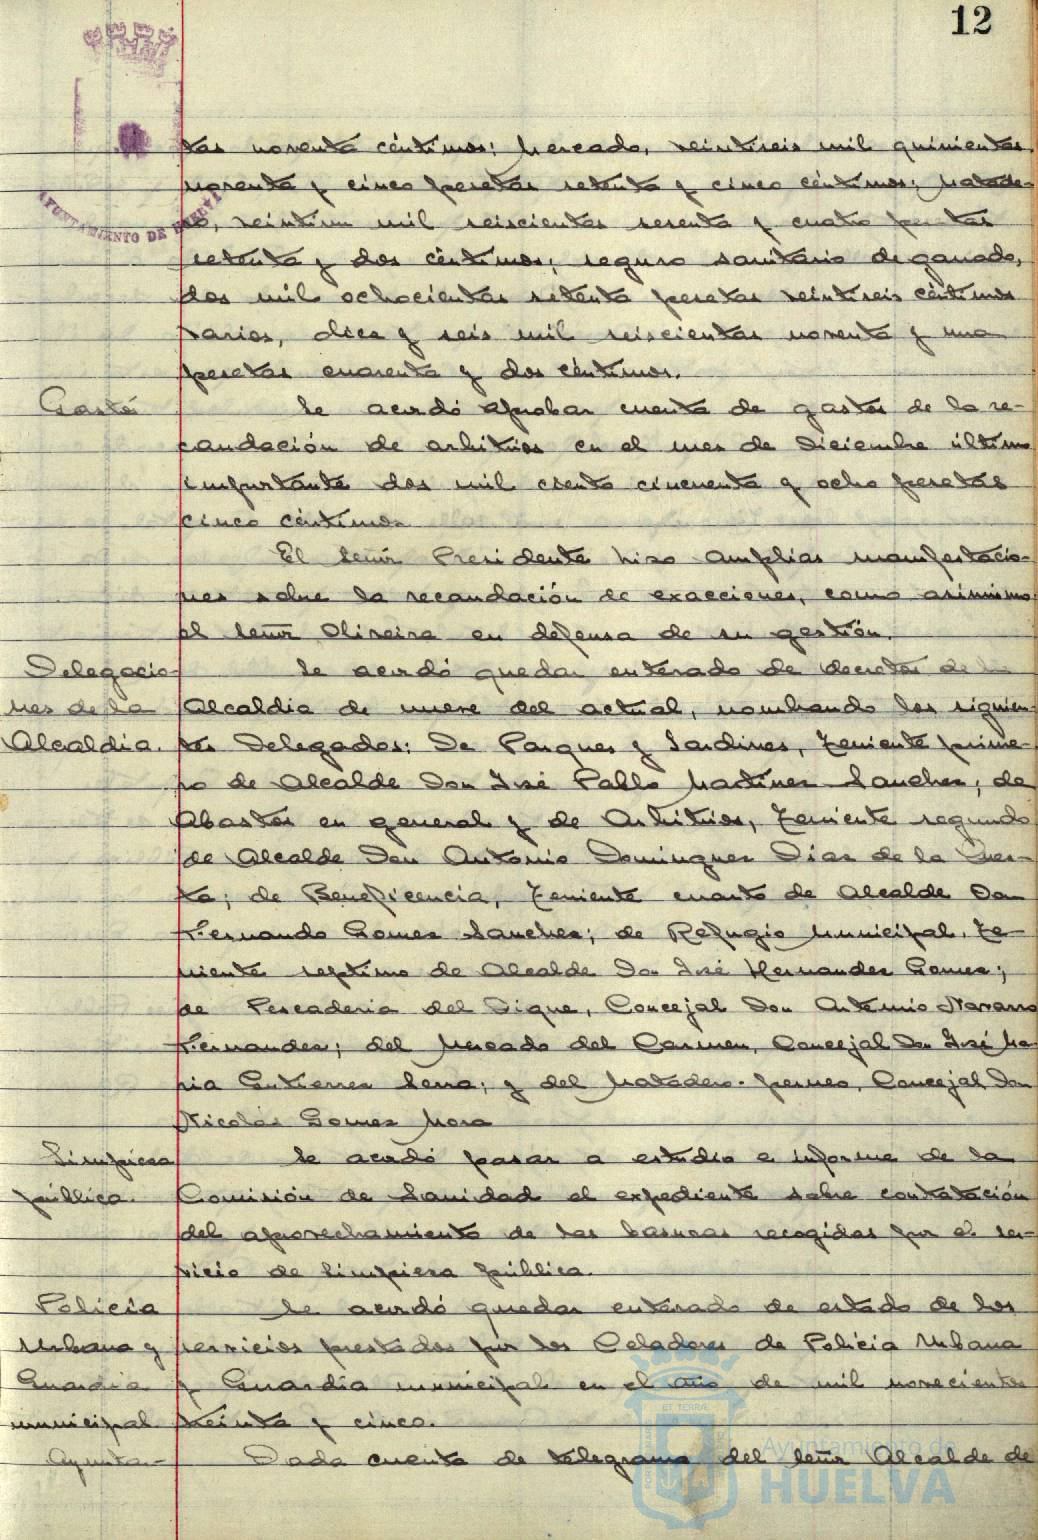 12
AYUNTAMIENTO DE HUELVA
tas noventa céntimos; Mercado, veintiseis mil quinientas
noventa y cinco pesetas setenta y cinco céntimos; Matade-
ro, veintiun mil seiscientas sesenta y cuatro pesetas
setenta y dos céntimos; seguro sanitario de ganado,
dos mil ochocientas setenta pesetas veintiseis céntimos
varios, diez y seis mil seiscientas noventa y una
pesetas cuarenta y dos céntimos.
Gastos
Se acordó aprobar cuenta de gastos de la re-
caudación de arbitrios en el mes de Diciembre último
importante dos mil ciento cincuenta y ocho pesetas
cinco céntimos
El señor Presidente hizo amplias manifestacio-
nes sobre la recaudación de exacciones, como asimismo
el señor Oliveira en defensa de su gestión.
Delegacio-
nes de la
Alcaldia.
Se acordó quedar enterado de decretos de la
Alcaldia de nueve del actual, nombrando los siguien-
tes Delegados: De Parques y Jardines, Teniente prime-
ro de Alcalde Don José Pablo Martinez Sanchez; de
Abastos en general y de Arbitrios, Teniente segundo
de Alcalde Don Antonio Dominguez Diaz de la Cues-
ta; de Beneficencia, Teniente cuarto de Alcalde Don
Fernando Gomez Sanchez; de Refugio Municipal, Te-
niente septimo de Alcalde Don José Hernandez Gomez;
de Pescaderia del Dique, Concejal Don Antonio Navarro
Fernandez; del Mercado del Carmen, Concejal Don José Ma-
ria Gutierrez Serra; y del Matadero perneo, Concejal Don
Nicolás Gomez Mora
Limpieza
pública.
Se acordó pasar a estudio e informe de la
Comisión de Sanidad el expediente sobre contratación
del aprovechamiento de las basuras recogidas por el ser-
vicio de limpieza pública.
Policía
Urbana y
Guardia
municipal
Se acordó quedar enterado de estado de los
servicios prestados por los Celadores de Policía Urbana
y Guardia municipal en el año de mil novecientos
treinta y cinco.
Ayunta-
Dada cuenta de telegrama del señor Alcalde de
Ayuntamiento de
HUELVA